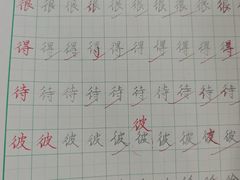 很很很很很很很很很
得得得得得得得得得
待待待待待待待待待
彼
彼彼彼彼彼彼彼彼彼彼